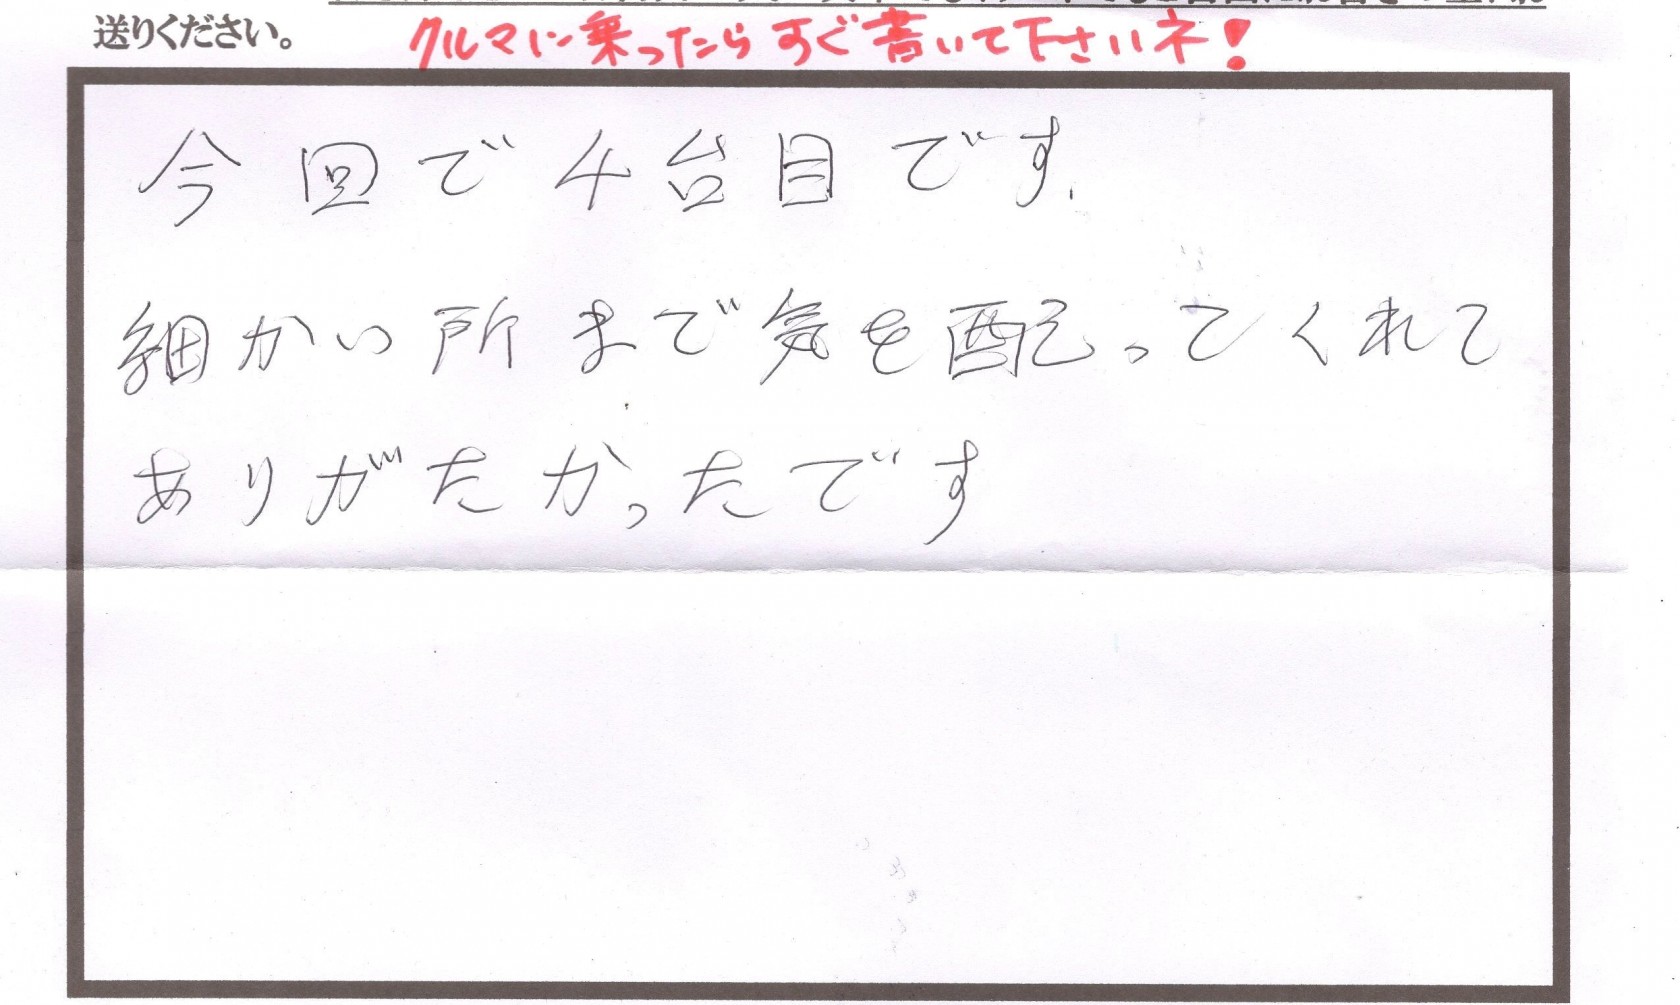 送りください。
クルマに乗ったらすぐ書いて下さいネ!
今回で4台目です.
細かい所まで気を配ってくれて
ありがたかったです